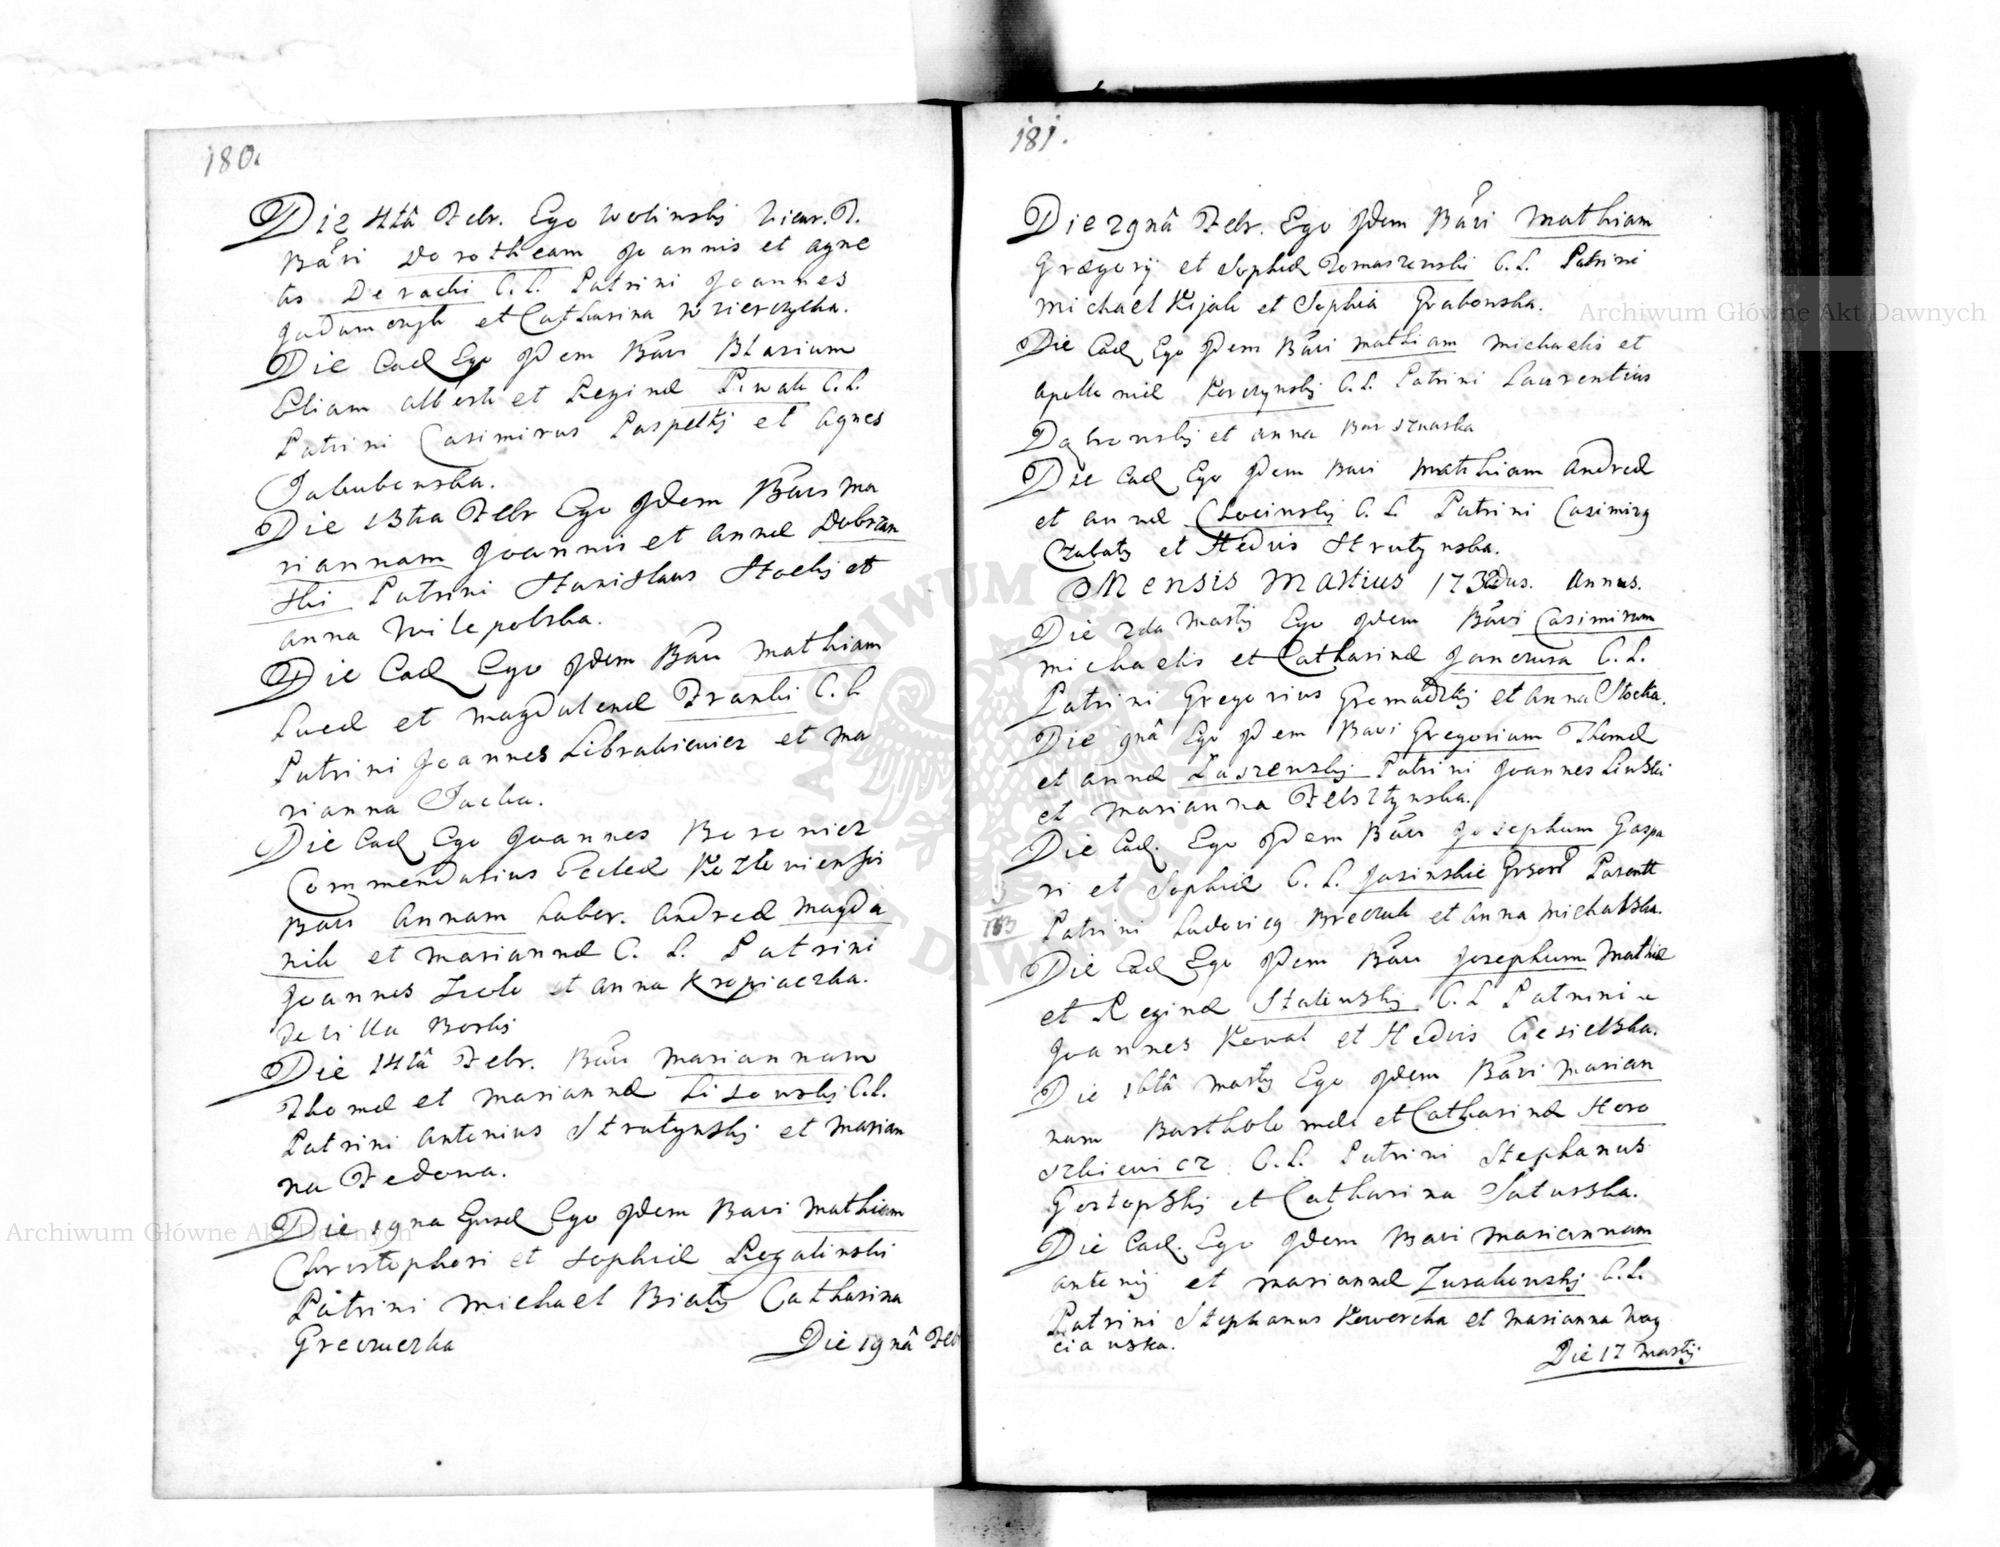 180.
Die 4tâ Febr. Ego Wolinskj Vicar. T.
Bãvi Dorotheam Joannis et Agne
tis Deracki C. L. Patrini Joannes
et Catharina Wzierczycka.
Die Ead Ego Jdem Bãvi Blasium
Eliam Alberti et Reginæ Piwak C. L.
Patrini Casimirus Paspelkj et Agnes
Jakubowska.
Die 13tia Febr Ego Jdem Bãvi Ma
riannam Joannis et Annæ Dobrzan
ski Patrini Stanislaus Stockj et
Anna Wilepolska.
Die Ead Ego Jdem Bãvi Mathiam
Lucæ et Magdalenæ Franki C. L.
Patrini Joannes Librakiewicz et Ma
rianna Jacka.
Die Ead Ego Joannes Boroniez
Commendarius Eccleæ Kozloviensis
Bavi Annam labor. Andreæ Magda
nik et Mariannæ C. L. Patrini
Joannes Zwolo et Anna Kropiaczka.
de villa Borki
Die 14tâ Febr. Bãvi Mariannam
Thomæ et Mariannæ Lisowskj C. L.
Patrini Antonius Strutynskj et Marian
na Fedowa.
Die 19na Ejusd Ego Jdem Bavi Mathiam
Christophori et Sophiæ Regalinski
Patrini Michael Biały Catharina
Greczuczka
Die 19nâ Feb
181.
Die 29nâ Febr. Ego Jdem Bãvi Mathiam
Gregorij et Sophiæ Tomaszewski C. L. Patrini
Michael Kijak et Sophia Grabowska.
Die Ead Ego Jdem Bãvi Mathiam Michaelis et
Apolloniæ Korczynskj C. L. Patrini Laurentius
Dabrowskj et Anna Barsznaska
Die Ead Ego Jdem Bavi Matthiam Andreæ
et Annæ Chocinskj C. L. Patrini Casimirg
Czubaty et Hedvis Strutynska.
Mensis Martius 1732dus. Annus.
Die 2da Martij Ego Jdem Bãvi Casimirum
Michaelis et Catharinæ Janczura C. L.
Patrini Gregorius Gromadzkj et Anna Stocka.
Die 9nâ Ego Jdem Bavi Gregorium Thomæ
et Annæ Laszewskj Patrini Joannes Linski
et Marianna Felsztynska.
Die Ead. Ego Jdem Bãvi Josephum Gaspa
ri et Sophiæ C. L. Jasinskie Parentt
Patrini Ludovicg Breczuk et Anna Michalska.
Die Ead Ego Jdem Bãvi Josephum Mathiæ
et Reginæ Stalinskj C. L Patrini
Joannes Kowal et Hedvis Ciesielska.
Die 16tâ Martij Ego Jdem Bãvi Marian
nam Bartholomæi et Catharinæ Horo
szkiewicz C. L. Patrini Stephanus
Gostopskj et Catharina Saturska.
Die Ead. Ego Jdem Bavi Mariannam
Antonij et Mariannæ Zurakowskj C. L.
Patrini Stephanus Kewercha et Marianna Woy
cia uska.
Die 17 Martij
Archiwum Główne Akt Dawnych
Archiwum Główne Akt Dawnych